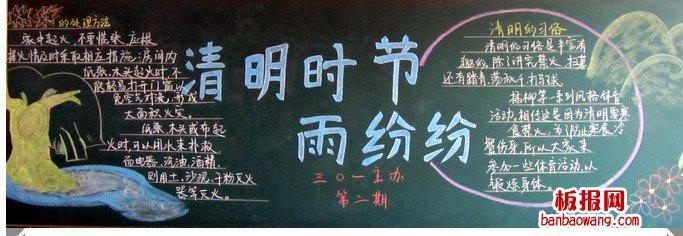 的处理方法
家中起火,不要慌张,应根
据火情及时采取相应措施:房间内
纸张、木头起火时,不
能轻易打开门窗,以
免空气对流,形成
大面积火灾。
纸张、木头或布起
火时,可以用水来扑救,
而电器、汽油、酒精、
则用土、沙泥、干粉灭火
器等灭火。
清明时节
雨纷纷
三〇一主办
第二期
清明的习俗
清明的习俗是丰富有
趣的,除了讲究禁火、扫墓
还有踏青、荡秋千、打马球、
插柳等一系列风俗体育
活动,相传这是因为清明要寒
食禁火,为了防止寒食冷
餐伤身,所以大家来
参加一些体育活动,以
锻炼身体。
板报网
banbaowang.com